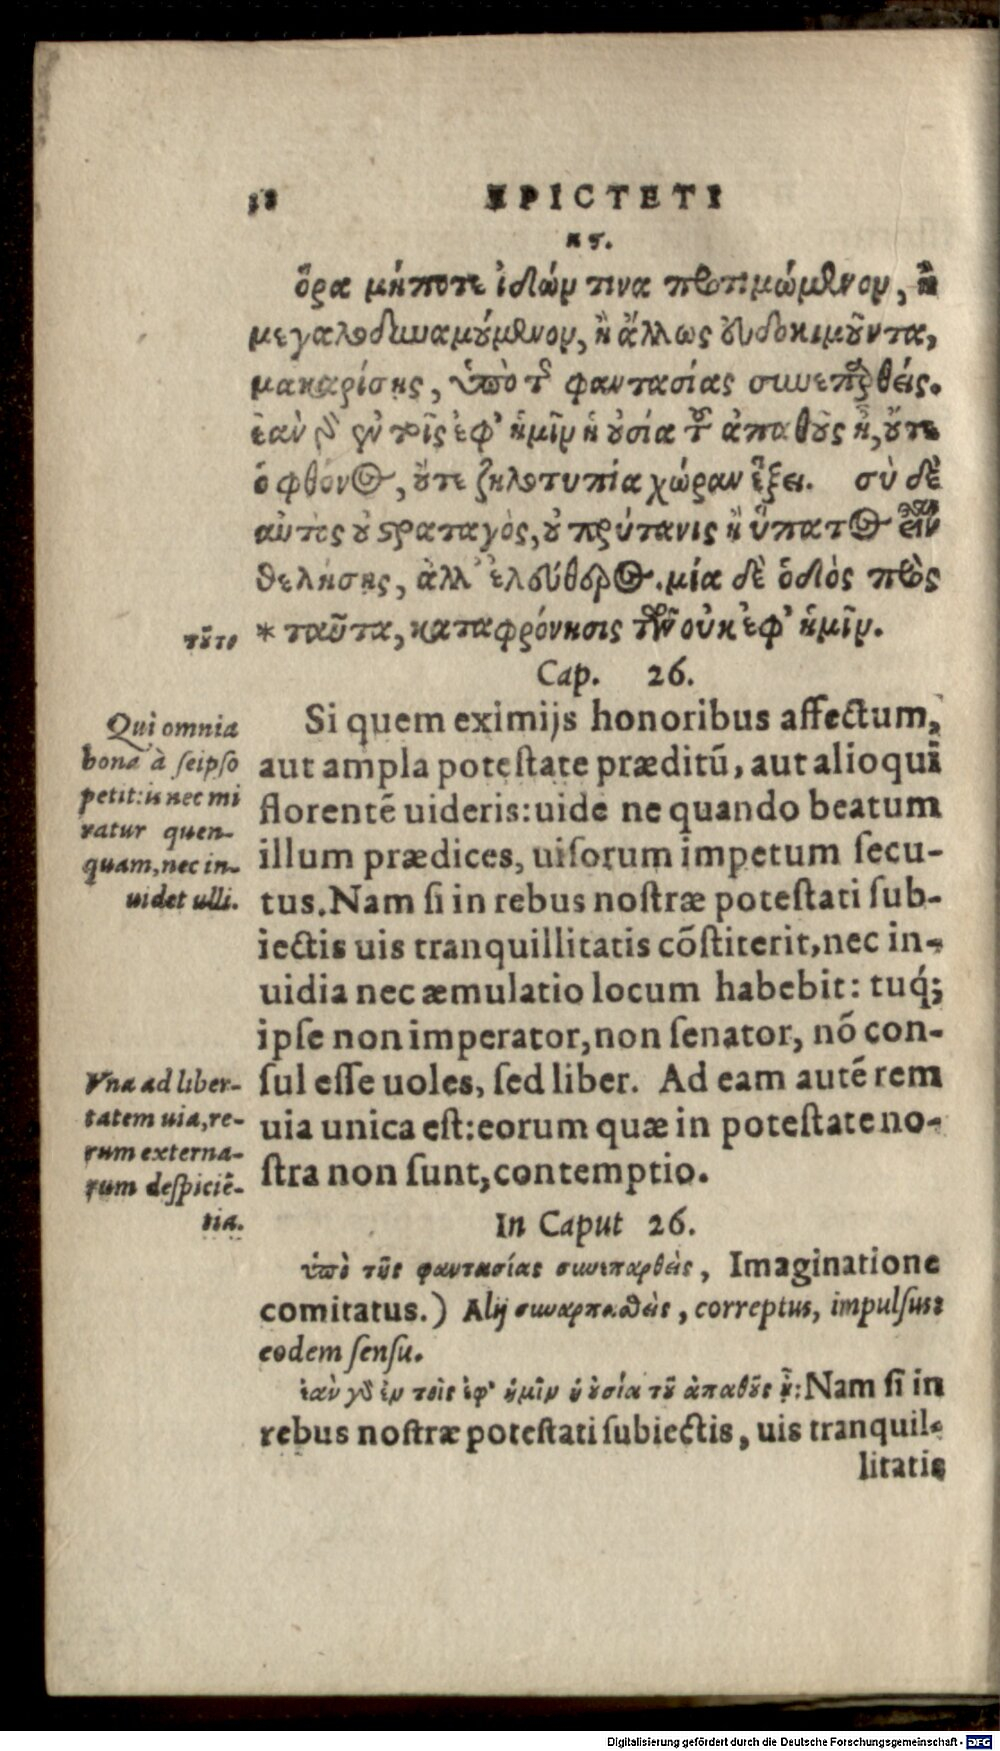 38 EPICTETI
κϛ.
ὅρα μήποτε ἰδών τινα προτιμώμενον, ἢ
μεγαλοδυναμούμενον, ἢ ἄλλως εὐδοκιμοῦντα,
μακαρίσῃς, ὑπὸ τῆς φαντασίας συνεπαρθείς.
ἐὰν γὰρ ἐν τοῖς ἐφ' ἡμῖν ἡ οὐσία τοῦ ἀπαθοῦς ᾖ, οὔτε
ὁ φθόνος, οὔτε ζηλοτυπία χώραν ἕξει. σὺ δὲ
αὐτὸς οὐ στρατηγὸς, οὐ πρύτανις ἢ ὕπατος εἶναι
θελήσῃς, ἀλλ' ἐλεύθερος. μία δὲ ὁδὸς πρὸς
τοῦτο * ταῦτα, καταφρόνησις τῶν οὐκ ἐφ' ἡμῖν.
Cap. 26.
Si quem eximijs honoribus affectum,
aut ampla potestate præditũ, aut alioqui
florentẽ uideris: uide ne quando beatum
illum prædices, uisorum impetum secu-
tus. Nam si in rebus nostræ potestati sub-
iectis uis tranquillitatis cõstiterit, nec in-
uidia nec æmulatio locum habebit: tuq́;
ipse non imperator, non senator, nõ con-
sul esse uoles, sed liber. Ad eam autẽ rem
uia unica est: eorum quæ in potestate no-
stra non sunt, contemptio.
Qui omnia
bona à seipso
petit: is nec mi
ratur quen-
quam, nec in-
uidet ulli.
Vna ad liber-
tatem uia, re-
rum externa-
rum despiciẽ-
tia.
In Caput 26.
ὑπὸ τῆς φαντασίας συνεπαρθεὶς, Imaginatione
comitatus.) Alij συναρπασθεὶς, correptus, impulsus:
eodem sensu.
ἐὰν γὰρ ἐν τοῖς ἐφ' ἡμῖν ἡ οὐσία τοῦ ἀπαθοῦς ᾖ: Nam si in
rebus nostræ potestati subiectis, uis tranquil-
litatis
Digitalisierung gefördert durch die Deutsche Forschungsgemeinschaft - DFG